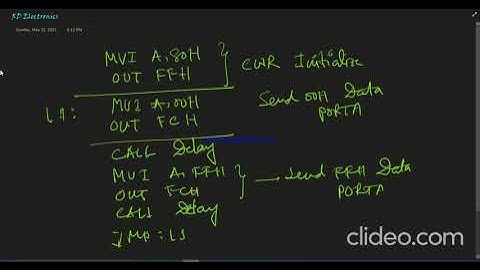 KD Electronics
Sunday, May 23, 2021 6:12 PM
MVI A, 80H
OUT FFH
CWR Initialize
L1: MVI A, 00H
OUT FCH
Send 00H Data
PORTA
CALL Delay
MVI A, FFH
OUT FCH
Send FFH Data
PORTA
CALL Delay
JMP: L1
clideo.com